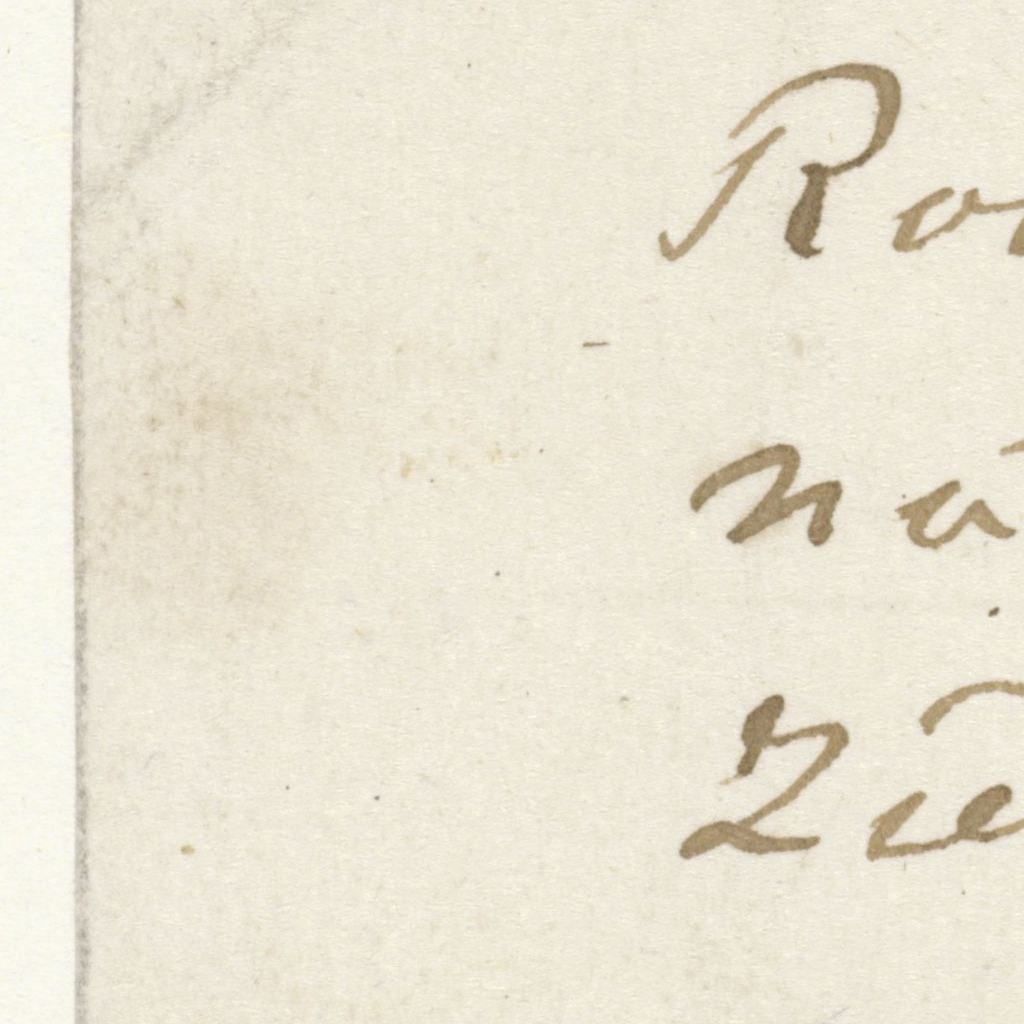 Ro
na
Zie